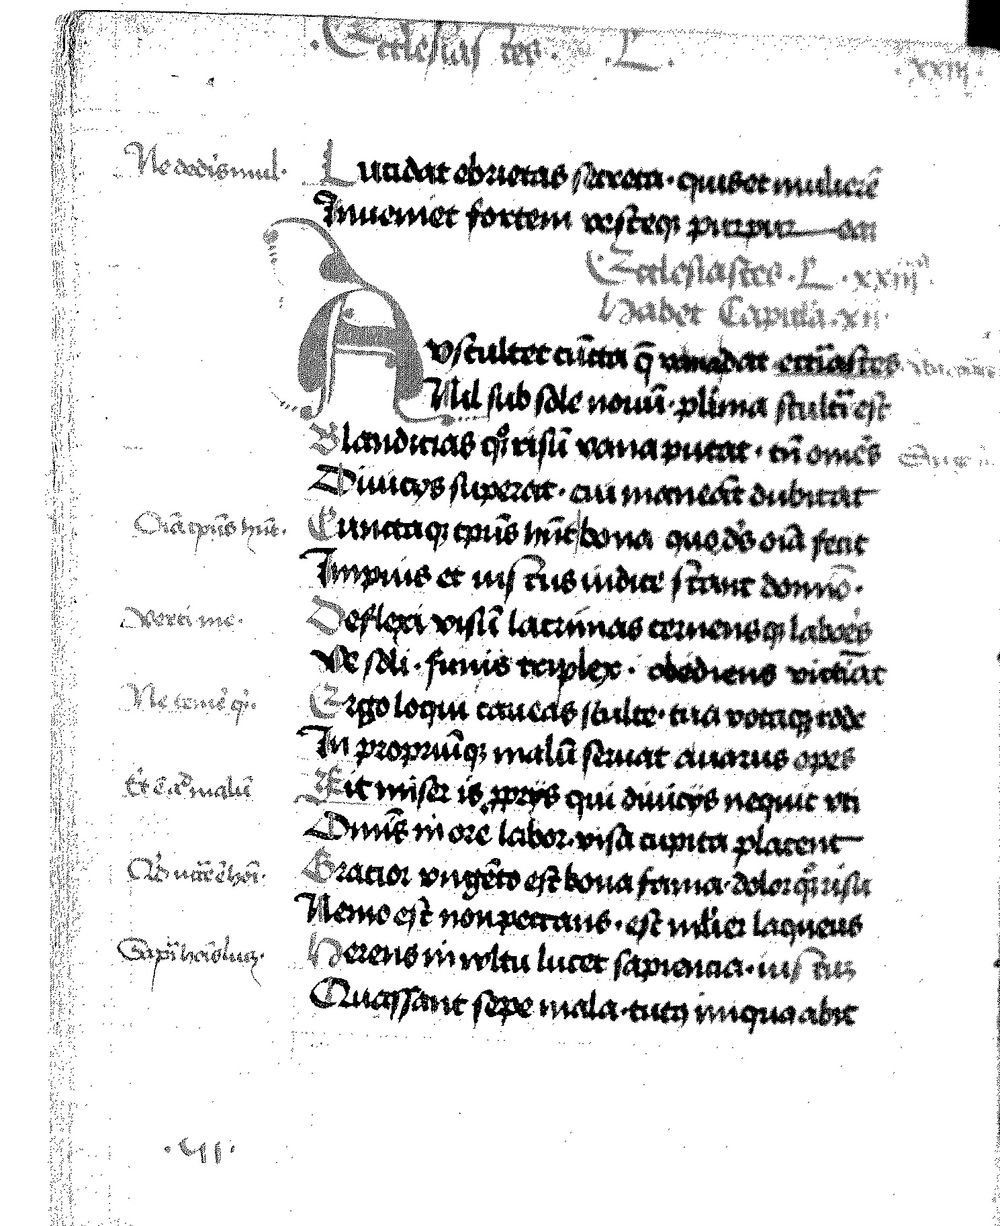 Ecclesiastes . L .
. xxiij .
Ne dederis mul .
Lucidat ebrietas secreta . quis et muliere
Inueniet fortem vesteq; purpur ea
Ecclesiastes . L . xxiij
Habet Capitula . xii
Ascultet cuncta
Nil sub sole nouū . plima stulti est
Blandicias risū vana putat . omēs
Diuicys superat . cui maneāt dubitat
Oīa tpūs hnt .
Cunctaq; tpūs hnt bona que ds oīa fecit
Impius et iustus iudice stant domino .
Verti me .
Deflexi visū lacrimas cernensq; labores
Ve soli . funis triplex . obediens
Ne temere
Ergo loqui caueas stulte . tua votaq; rode
In propriūq; malū seruat auarus opes
malū
Fit miser is qui diuicys nequit vti
Omīs in ore labor . visa cupita placent
Gracior vngēto est bona fama . dolor risu
Nemo est non peccans . est mlier laqueus
Sapi hois luc .
Herens in voltu lucet sapiencia . iustus
Quassant sepe mala . iniqua abit
. VII .